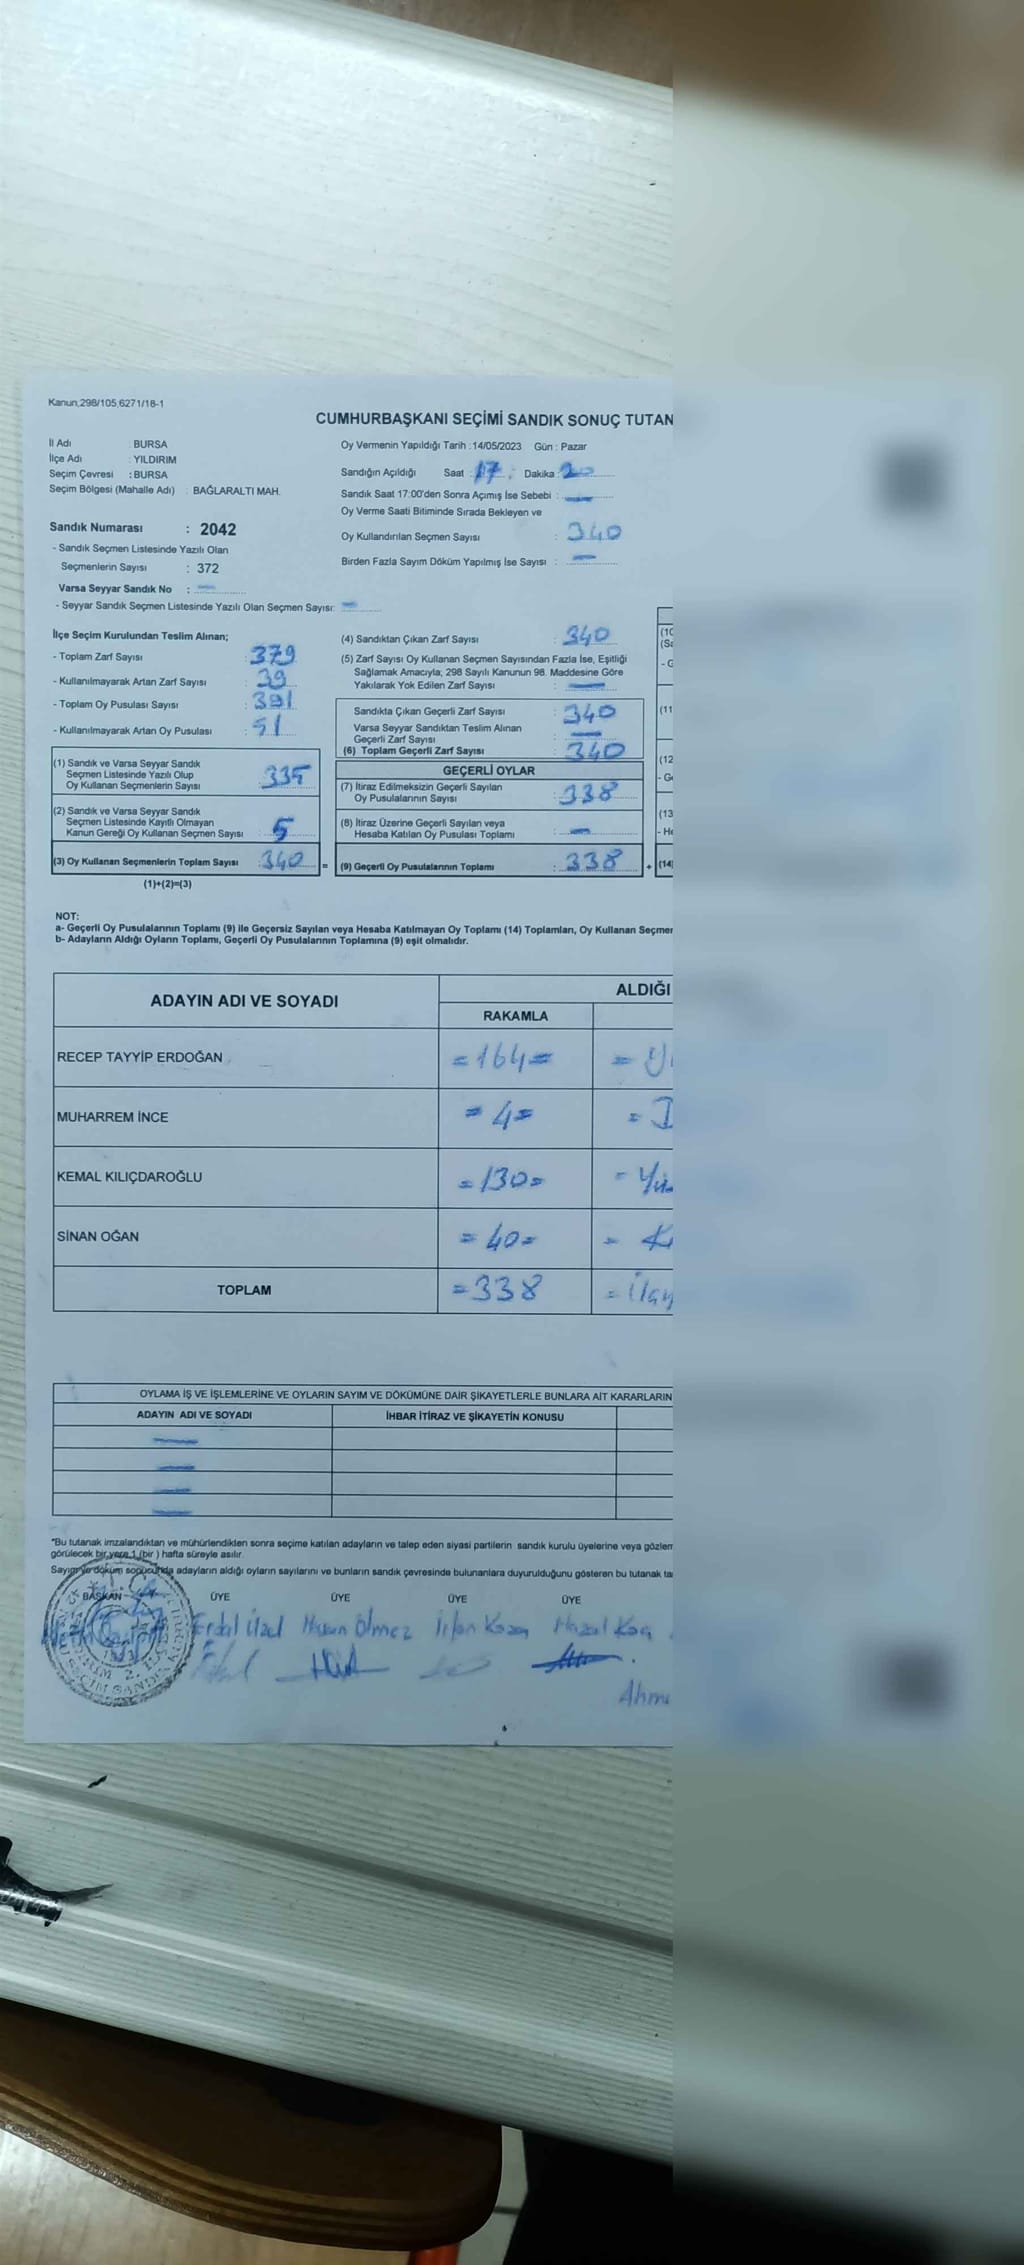 Kanun,298/105,6271/18-1
CUMHURBAŞKANI SEÇİMİ SANDIK SONUÇ TUTAN
İl Adı : BURSA
İlçe Adı : YILDIRIM
Seçim Çevresi : BURSA
Seçim Bölgesi (Mahalle Adı) : BAĞLARALTI MAH.
Oy Vermenin Yapıldığı Tarih :14/05/2023 Gün : Pazar
Sandığın Açıldığı Saat : 17 : Dakika : 20
Sandık Saat 17:00'den Sonra Açımış İse Sebebi : —
Oy Verme Saati Bitiminde Sırada Bekleyen ve
Oy Kullandırılan Seçmen Sayısı : 340
Birden Fazla Sayım Döküm Yapılmış İse Sayısı : —
Sandık Numarası : 2042
- Sandık Seçmen Listesinde Yazılı Olan
Seçmenlerin Sayısı : 372
Varsa Seyyar Sandık No : —
- Seyyar Sandık Seçmen Listesinde Yazılı Olan Seçmen Sayısı: —
İlçe Seçim Kurulundan Teslim Alınan;
- Toplam Zarf Sayısı : 379
- Kullanılmayarak Artan Zarf Sayısı : 39
- Toplam Oy Pusulası Sayısı : 391
- Kullanılmayarak Artan Oy Pusulası : 51
(1) Sandık ve Varsa Seyyar Sandık
Seçmen Listesinde Yazılı Olup
Oy Kullanan Seçmenlerin Sayısı : 335
(2) Sandık ve Varsa Seyyar Sandık
Seçmen Listesinde Kayıtlı Olmayan
Kanun Gereği Oy Kullanan Seçmen Sayısı : 5
(3) Oy Kullanan Seçmenlerin Toplam Sayısı : 340 =
(1)+(2)=(3)
(4) Sandıktan Çıkan Zarf Sayısı : 340
(5) Zarf Sayısı Oy Kullanan Seçmen Sayısından Fazla İse, Eşitliği
Sağlamak Amacıyla; 298 Sayılı Kanunun 98. Maddesine Göre
Yakılarak Yok Edilen Zarf Sayısı : —
Sandıkta Çıkan Geçerli Zarf Sayısı : 340
Varsa Seyyar Sandıktan Teslim Alınan
Geçerli Zarf Sayısı : —
(6) Toplam Geçerli Zarf Sayısı : 340
GEÇERLİ OYLAR
(7) İtiraz Edilmeksizin Geçerli Sayılan
Oy Pusulalarının Sayısı : 338
(8) İtiraz Üzerine Geçerli Sayılan veya
Hesaba Katılan Oy Pusulası Toplamı : —
(9) Geçerli Oy Pusulalarının Toplamı : 338 +
(10
(Sa
- G
(11
(12
- Ge
(13
- He
(14)
NOT:
a- Geçerli Oy Pusulalarının Toplamı (9) ile Geçersiz Sayılan veya Hesaba Katılmayan Oy Toplamı (14) Toplamları, Oy Kullanan Seçmen
b- Adayların Aldığı Oyların Toplamı, Geçerli Oy Pusulalarının Toplamına (9) eşit olmalıdır.
ADAYIN ADI VE SOYADI ALDIĞI
RAKAMLA
RECEP TAYYİP ERDOĞAN =164= = Y
MUHARREM İNCE = 4= = D
KEMAL KILIÇDAROĞLU =130= = Yü
SİNAN OĞAN = 40= = K
TOPLAM =338 = Üçy
OYLAMA İŞ VE İŞLEMLERİNE VE OYLARIN SAYIM VE DÖKÜMÜNE DAİR ŞİKAYETLERLE BUNLARA AİT KARARLARIN
ADAYIN ADI VE SOYADI İHBAR İTİRAZ VE ŞİKAYETİN KONUSU
*Bu tutanak imzalandıktan ve mühürlendikten sonra seçime katılan adayların ve talep eden siyasi partilerin sandık kurulu üyelerine veya gözlem
görülecek bir yere 1 (bir ) hafta süreyle asılır.
Sayım ve döküm sonucunda adayların aldığı oyların sayılarını ve bunların sandık çevresinde bulunanlara duyurulduğunu gösteren bu tutanak ta
BAŞKAN ÜYE ÜYE ÜYE ÜYE
Erdal Hasan Ölmez İrfan Hazal Koç
Ahm